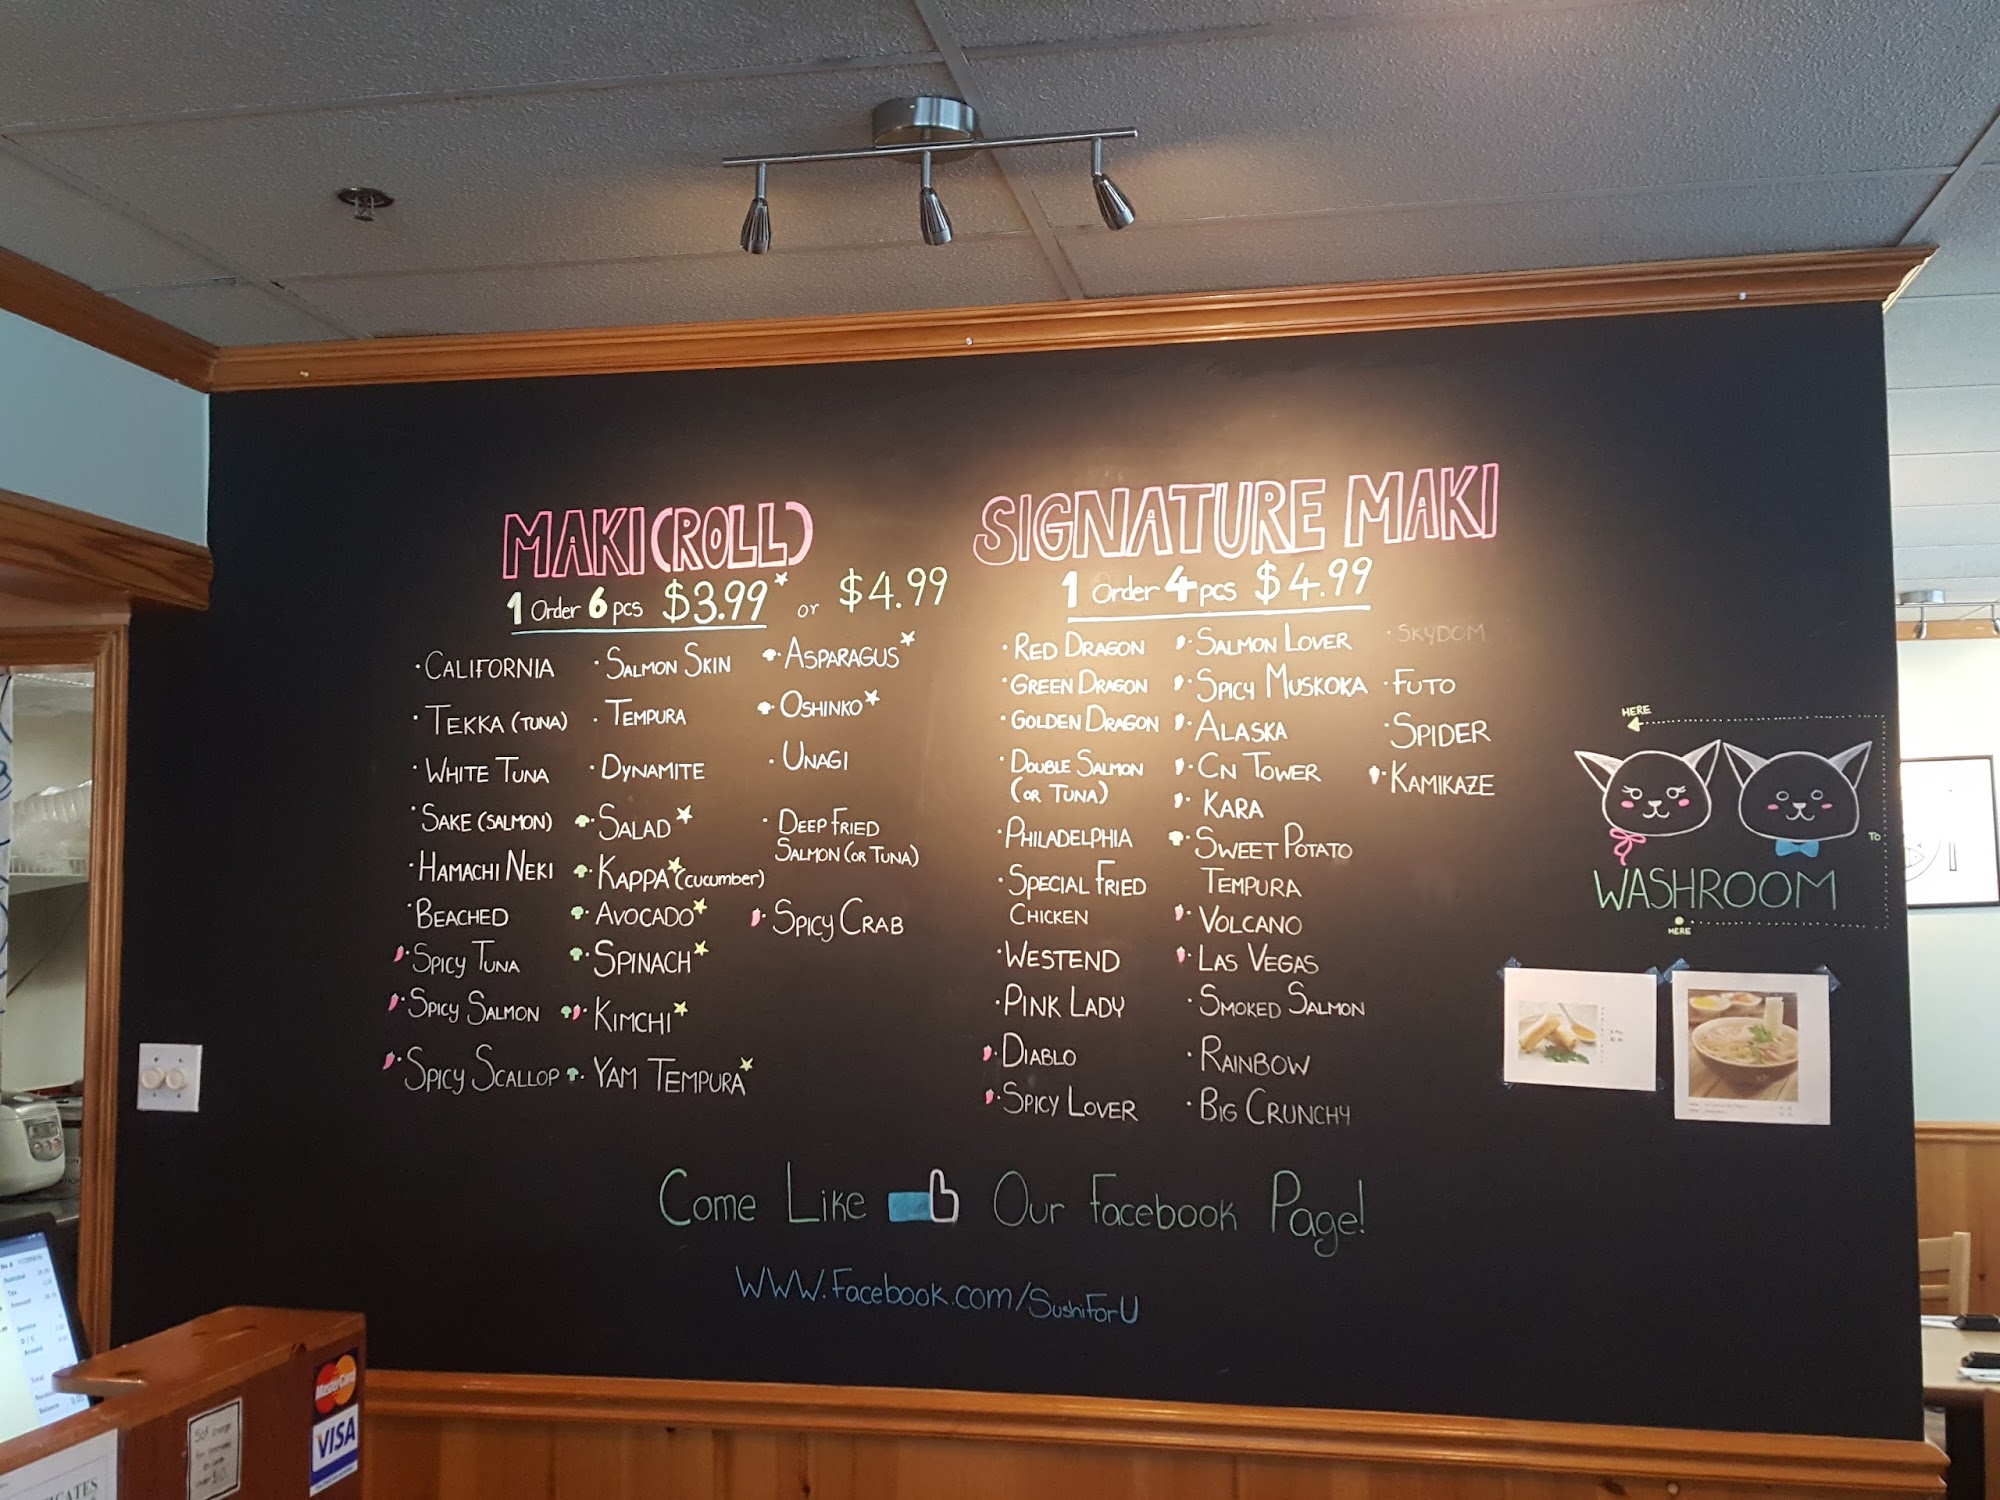 MAKI (ROLL)
1 Order 6 pcs $3.99* or $4.99
· CALIFORNIA
· TEKKA (TUNA)
· WHITE TUNA
· SAKE (SALMON)
· HAMACHI NEKI
· BEACHED
· SPICY TUNA
· SPICY SALMON
· SPICY SCALLOP
· SALMON SKIN
· TEMPURA
· DYNAMITE
· SALAD*
· KAPPA* (CUCUMBER)
· AVOCADO*
· SPINACH*
· KIMCHI*
· YAM TEMPURA*
· ASPARAGUS*
· OSHINKO*
· UNAGI
· DEEP FRIED
SALMON (OR TUNA)
· SPICY CRAB
SIGNATURE MAKI
1 Order 4 pcs $4.99
· RED DRAGON
· GREEN DRAGON
· GOLDEN DRAGON
· DOUBLE SALMON
(OR TUNA)
· PHILADELPHIA
· SPECIAL FRIED
CHICKEN
· WESTEND
· PINK LADY
· DIABLO
· SPICY LOVER
· SALMON LOVER
· SPICY MUSKOKA
· ALASKA
· CN TOWER
· KARA
· SWEET POTATO
TEMPURA
· VOLCANO
· LAS VEGAS
· SMOKED SALMON
· RAINBOW
· BIG CRUNCHY
· SKYDOM
· FUTO
· SPIDER
· KAMIKAZE
HERE
TO
WASHROOM
HERE
Come Like Our Facebook Page!
WWW.Facebook.com/SushiForU
MasterCard
VISA
Subtotal
Tax
Amount
Service
Total
Balance